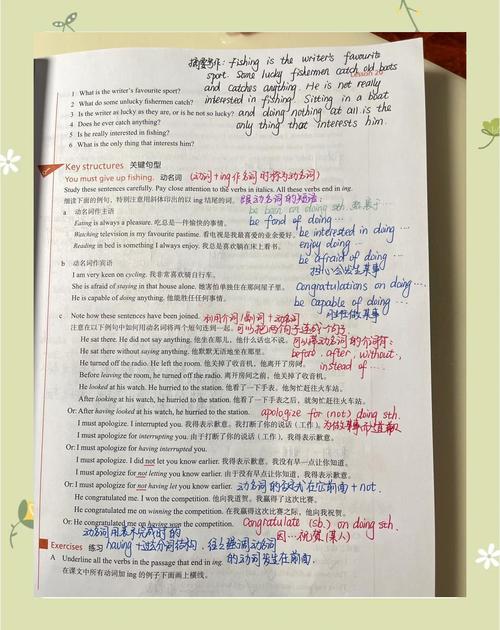 摘要写作: fishing is the writer's favourite
sport. Some lucky fishermen catch old boots
Lesson 20
and catches anything. He is not really
interested in fishing. Sitting in a boat
and doing nothing at all is the
only thing that interests him.
1 What is the writer's favourite sport?
2 What do some unlucky fishermen catch?
3 Is the writer as lucky as they are, or is he not so lucky?
4 Does he ever catch anything?
5 Is he really interested in fishing?
6 What is the only thing that interests him?
Key structures 关键句型
You must give up fishing. 动名词 (动词+ing作名词时称为动名词)
Study these sentences carefully. Pay close attention to the verbs in italics. All these verbs end in ing.
细读下面的例句，特别注意用斜体印出的以 ing 结尾的词。 跟动名词的短语:
a 动名词作主语
be keen on doing sth. 热衷于…
Eating is always a pleasure. 吃总是一件愉快的事情。
be fond of doing …
Watching television is my favourite pastime. 看电视是我最喜爱的业余爱好。
be interested in doing …
Reading in bed is something I always enjoy. 我总是喜欢躺在床上看书。
enjoy doing …
be afraid of doing …
b 动名词作宾语
担心会发生某事
I am very keen on cycling. 我非常喜欢骑自行车。
She is afraid of staying in that house alone. 她害怕单独住在那间屋子里。
Congratulations on doing…
He is capable of doing anything. 他能胜任任何事情。
be capable of doing
胜任做某事
c Note how these sentences have been joined. 利用介词/副词+动名词
注意在以下例句中如何用动名词将两个短句连到一起。 可以把两个句子连成一个句子
He sat there. He did not say anything. 他坐在那儿，他什么话也不说。
可以跟动名词的介词有:
He sat there without saying anything. 他默默无语地坐在那里。
before, after, without,
He turned off the radio. He left the room. 他关上了收音机，他离开了房间。
instead of …
Before leaving the room, he turned off the radio. 离开房间之前，他关掉了收音机。
He looked at his watch. He hurried to the station. 他看了一下手表。他匆忙赶往火车站。
After looking at his watch, he hurried to the station. 他看了一下手表之后，就匆忙赶往火车站。
Or: After having looked at his watch, he hurried to the station. apologize for (not) doing sth.
I must apologize. I interrupted you. 我得表示歉意。我打断了你的谈话（工作）。 为做某事而道歉
I must apologize for interrupting you. 由于打断了你的谈话（工作），我得表示歉意。
Or: I must apologize for having interrupted you.
I must apologize. I did not let you know earlier. 我得表示歉意。我没有早一点让你知道。
I must apologize for not letting you know earlier. 由于没有早一点让你知道，我得表示歉意。
Or: I must apologize for not having let you know earlier. 动名词的否定式在它前面+not.
He congratulated me. I won the competition. 他向我道贺。我赢得了这次比赛。
He congratulated me on winning the competition. 在我赢得这次比赛之际，他向我祝贺。
Or: He congratulated me on having won the competition. Congratulate (sb.) on doing sth.
动名词用表示完成时的
因…祝贺(某人)
Exercises 练习 having+过去分词结构，往往强调动名词
A Underline all the verbs in the passage that end in ing. 的动词发生在前面.
在课文中所有动词加 ing 的例子下面画上横线。